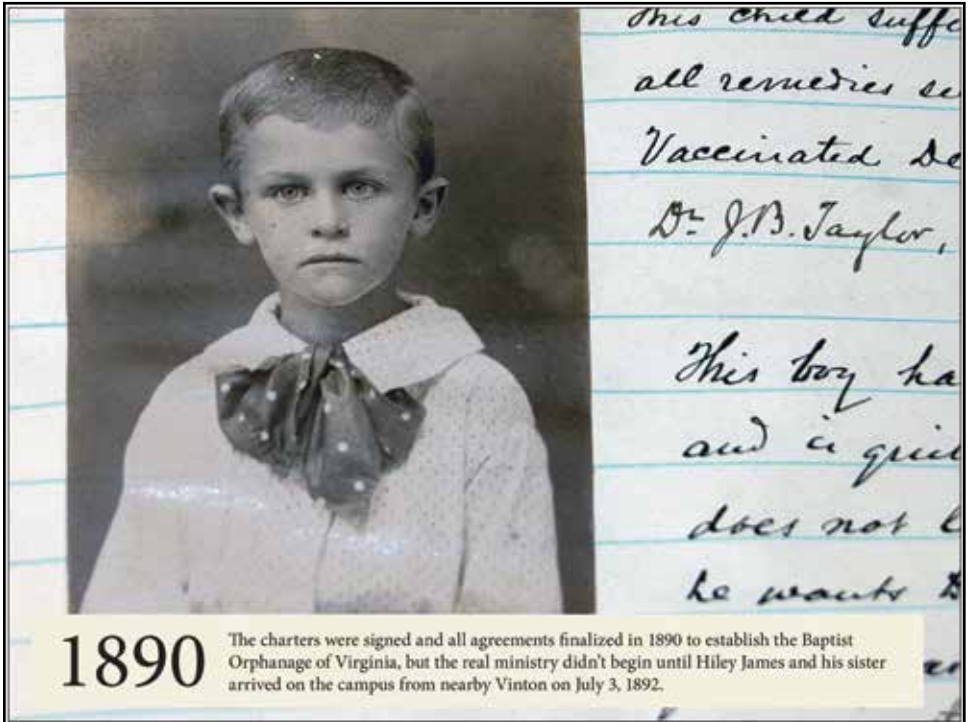 This child suff
all remedies
Vaccinated De
Dr J.B. Taylor,
This boy ha
and is
does not
he wants
1890
The charters were signed and all agreements finalized in 1890 to establish the Baptist
Orphanage of Virginia, but the real ministry didn't begin until Hiley James and his sister
arrived on the campus from nearby Vinton on July 3, 1892.